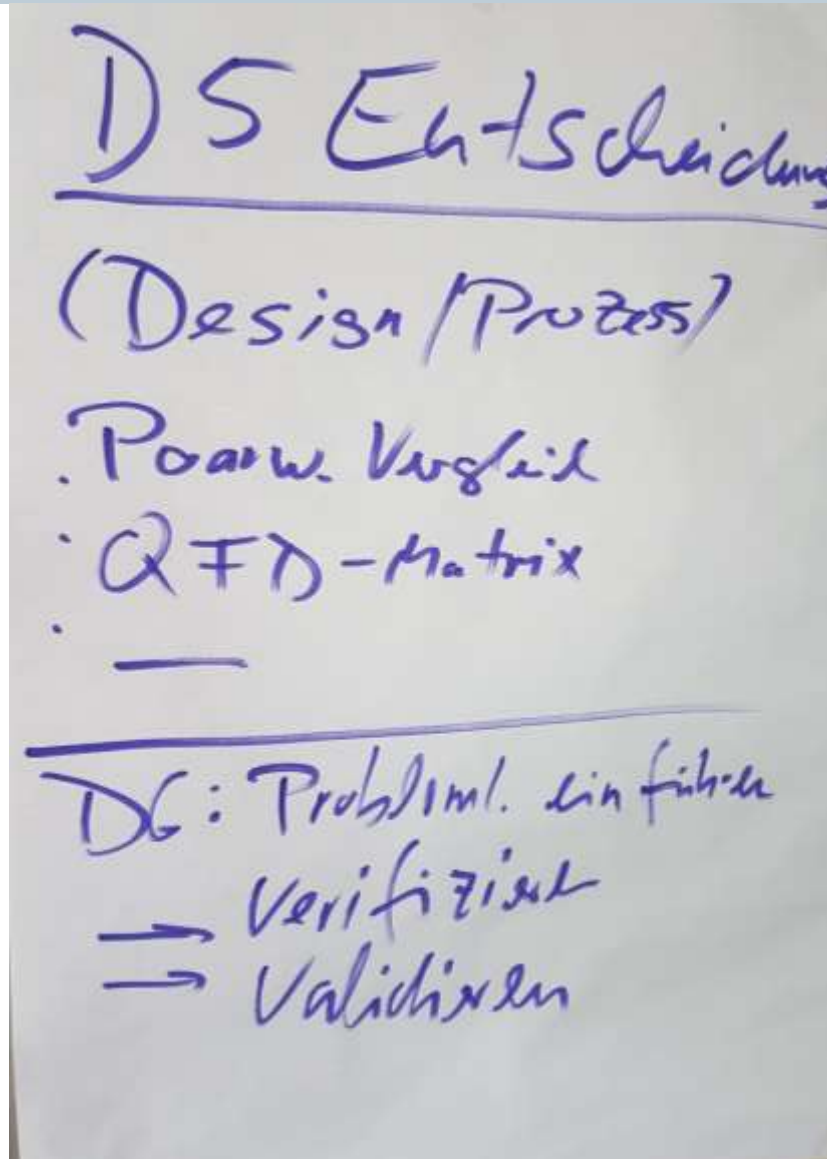 D5 Entscheidung
(Design/Prozess)
. Paarw. Vergleich
. QFD-Matrix
. —
D6: Probleml. einführen
→ Verifizieren
→ Validieren